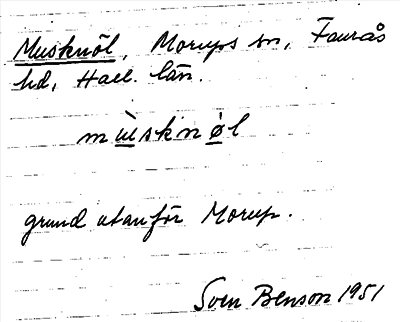 Musknöl, Morups sn, Faurås
hd, Hall. län.
mùsknøl
grund utanför Morup.
Sven Benson 1951